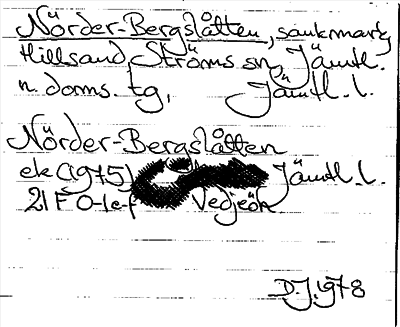 Nörder-Bergslåtten, sankmark,
Hillsand, Ströms sn, Jämtl.
n. doms. tg, Jämtl. l.
Nörder-Bergslåtten
ek (1975) Jämtl. l.
21F 0-1e-f Vedjeön
D.J. 1978